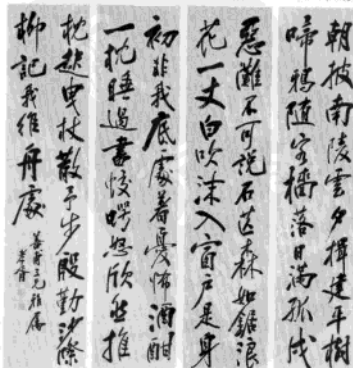 朝披南陵雲夕揖建平樹
啼鴉随客檣落日滿孤戍
惡灘不可說石芒森如鋸浪
花一丈白吹沫入窗戶是身
初非我底處著憂怖酒酣
一枕睡過盡蛟鱷怒欣然推
枕起曳杖散予步殷勤沙際
柳記我維舟處
三兄雅属
孝胥